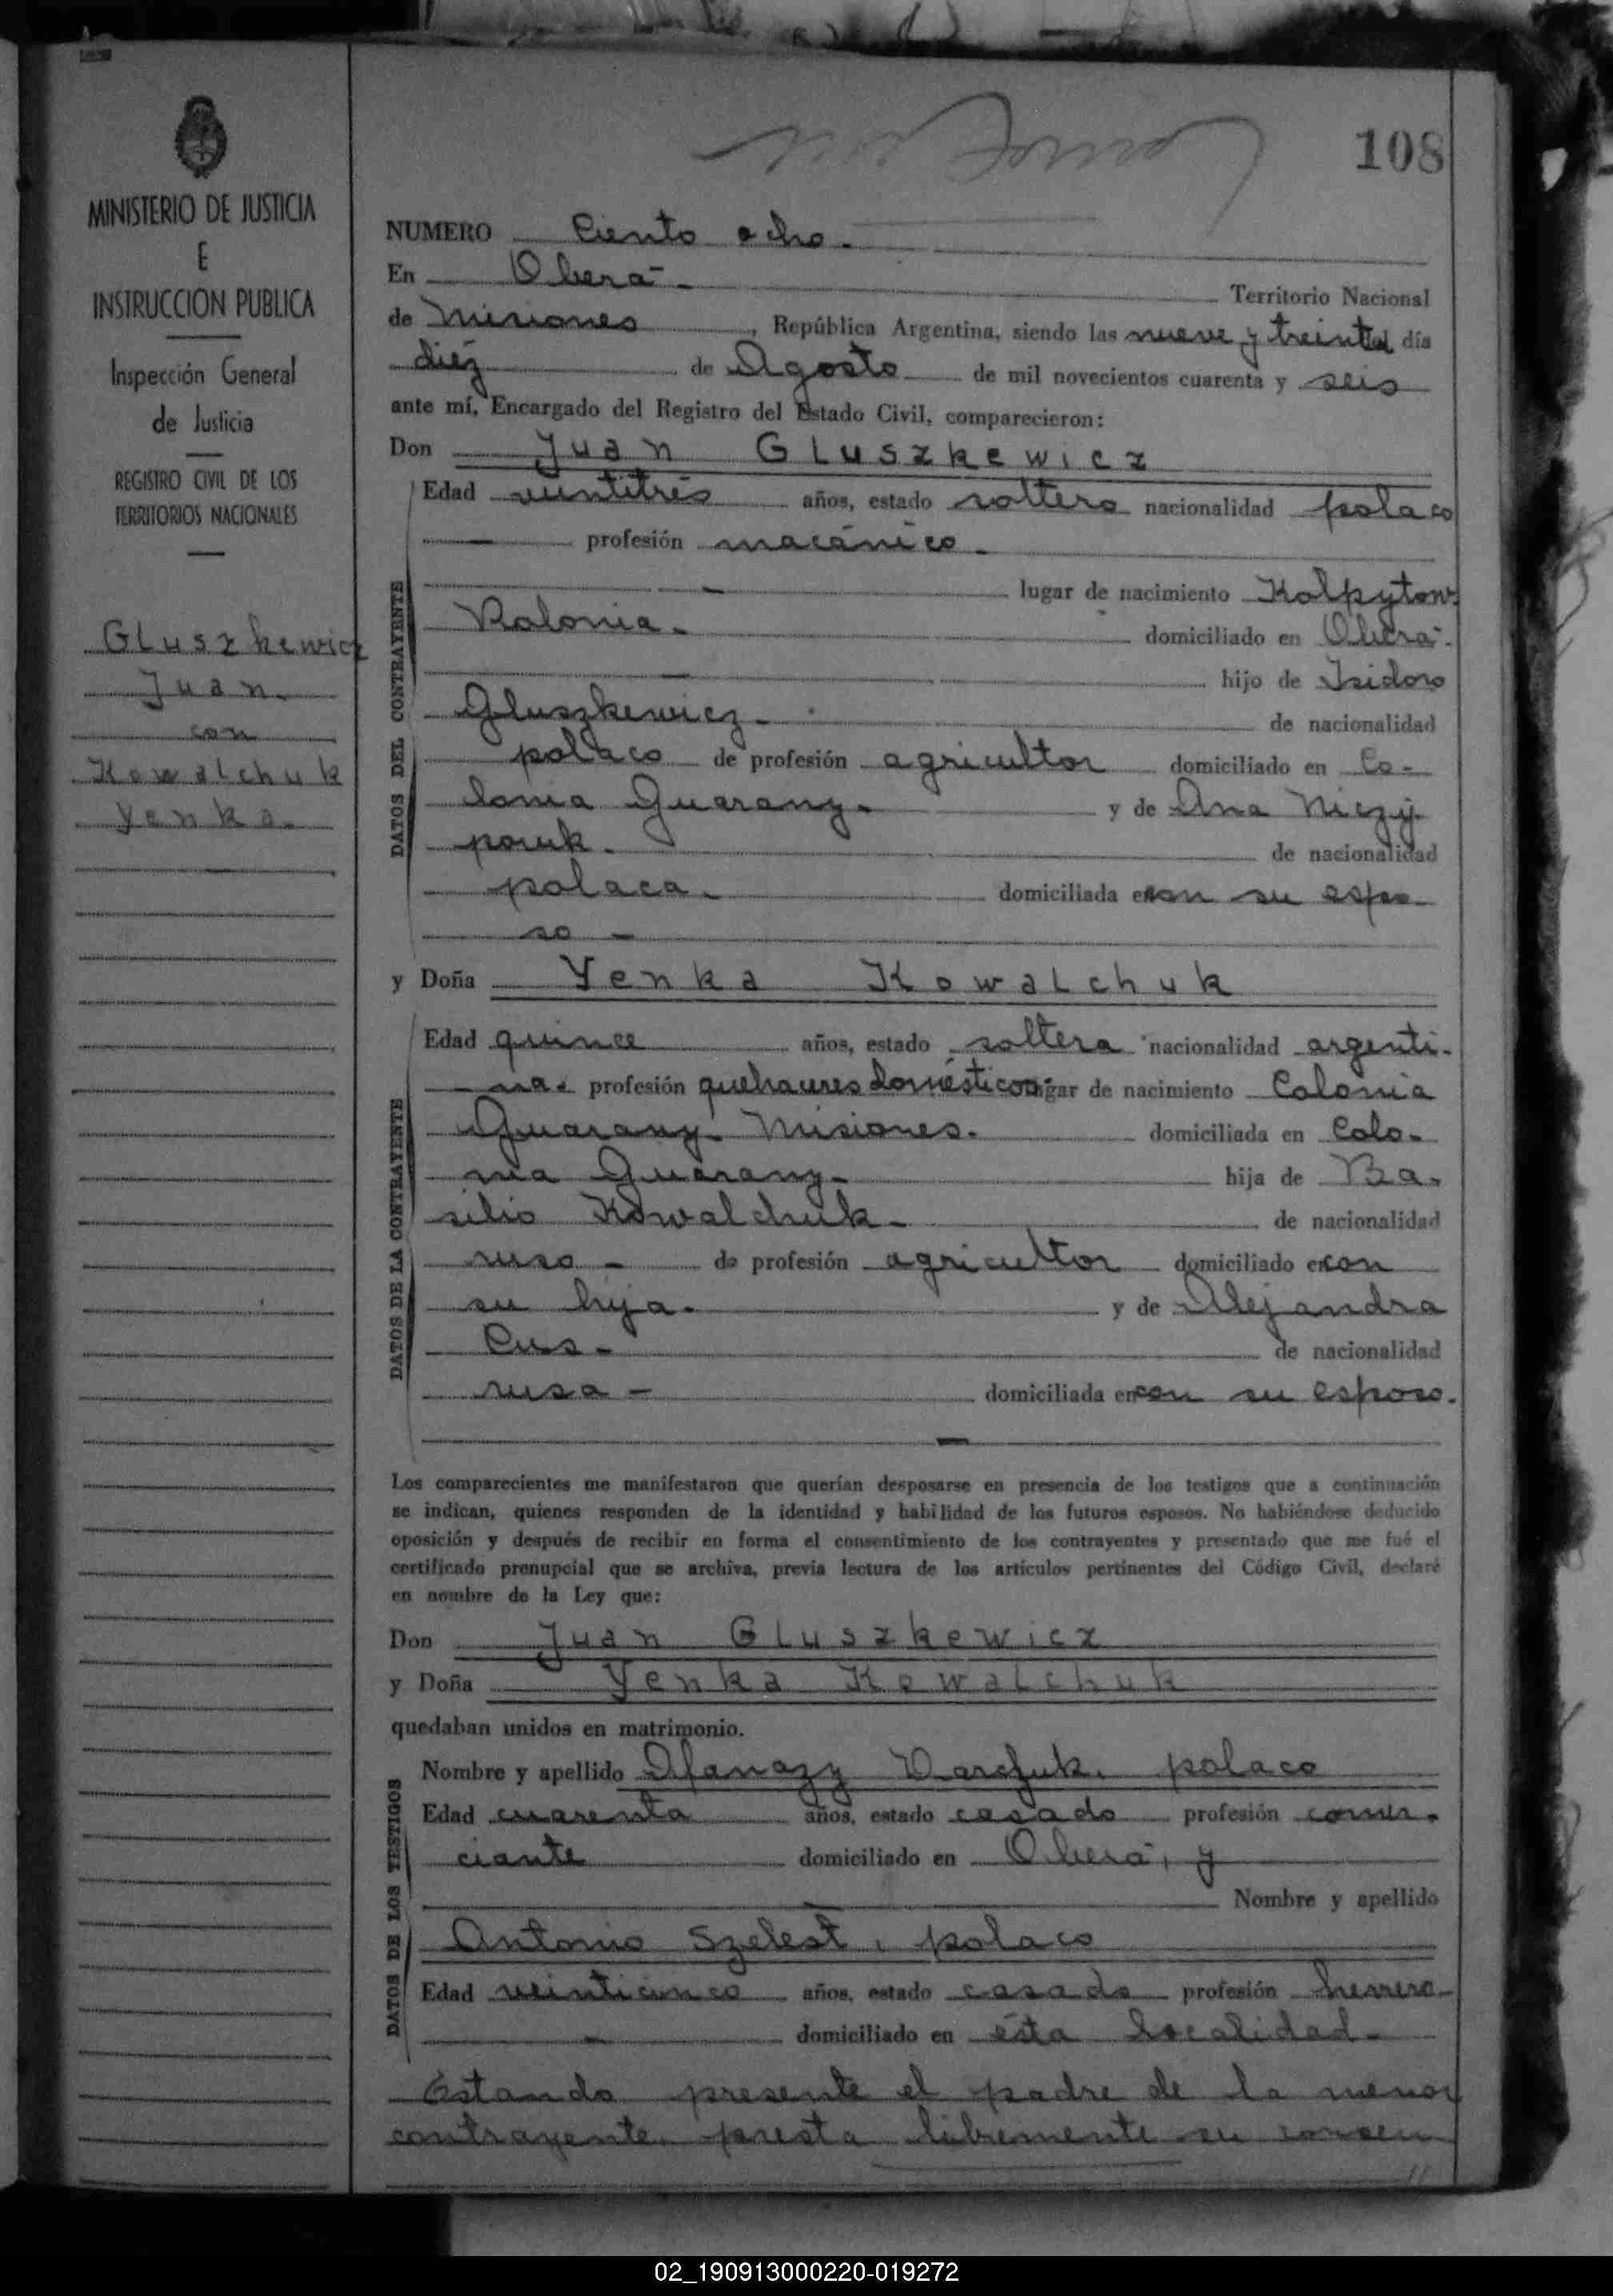 108
MINISTERIO DE JUSTICIA
E
INSTRUCCION PUBLICA
Inspección General
de Justicia
REGISTRO CIVIL DE LOS
TERRITORIOS NACIONALES
Gluszkewicz
Juan.
con
Kowalchuk
Yenka.
NUMERO Ciento ocho.
En Oberá - Territorio Nacional
de Misiones, República Argentina, siendo las nueve y treinta del día
diéz de Agosto de mil novecientos cuarenta y seis
ante mí, Encargado del Registro del Estado Civil, comparecieron:
Don Juan Gluszkewicz
DATOS DEL CONTRAYENTE
Edad veintitrés años, estado soltero nacionalidad polaco
— profesión macánico.
— lugar de nacimiento Kolpytow.
Polonia. domiciliado en Oberá.
— hijo de Isidoro
Gluszkewicz. de nacionalidad
polaco de profesión agricultor domiciliado en Co-
lonia Guarany. y de Ana Niczy-
poruk. de nacionalidad
polaca. domiciliada en con su espo
so —
y Doña Yenka Kowalchuk
DATOS DE LA CONTRAYENTE
Edad quince años, estado soltera nacionalidad argenti-
na. profesión quehaceres domésticos lugar de nacimiento Colonia
Guarany. Misiones. domiciliada en Colo-
nia Guarany. hija de Ba-
silio Kowalchuk. de nacionalidad
ruso — de profesión agricultor domiciliado en con
su hija. y de Alejandra
Cus. de nacionalidad
rusa — domiciliada en con su esposo.
Los comparecientes me manifestaron que querían desposarse en presencia de los testigos que a continuación
se indican, quienes responden de la identidad y habilidad de los futuros esposos. No habiéndose deducido
oposición y después de recibir en forma el consentimiento de los contrayentes y presentado que me fué el
certificado prenupcial que se archiva, previa lectura de los artículos pertinentes del Código Civil, declaré
en nombre de la Ley que:
Don Juan Gluszkewicz
y Doña Yenka Kowalchuk
quedaban unidos en matrimonio.
DATOS DE LOS TESTIGOS
Nombre y apellido Afanazy polaco
Edad cuarenta años, estado casado profesión comer-
ciante domiciliado en Oberá, y
Nombre y apellido
Antonio Szelest, polaco
Edad veinticinco años, estado casado profesión herrero
— domiciliado en ésta localidad.
Estando presente el padre de la menor
contrayente, presta libremente su consen
02_190913000220-019272